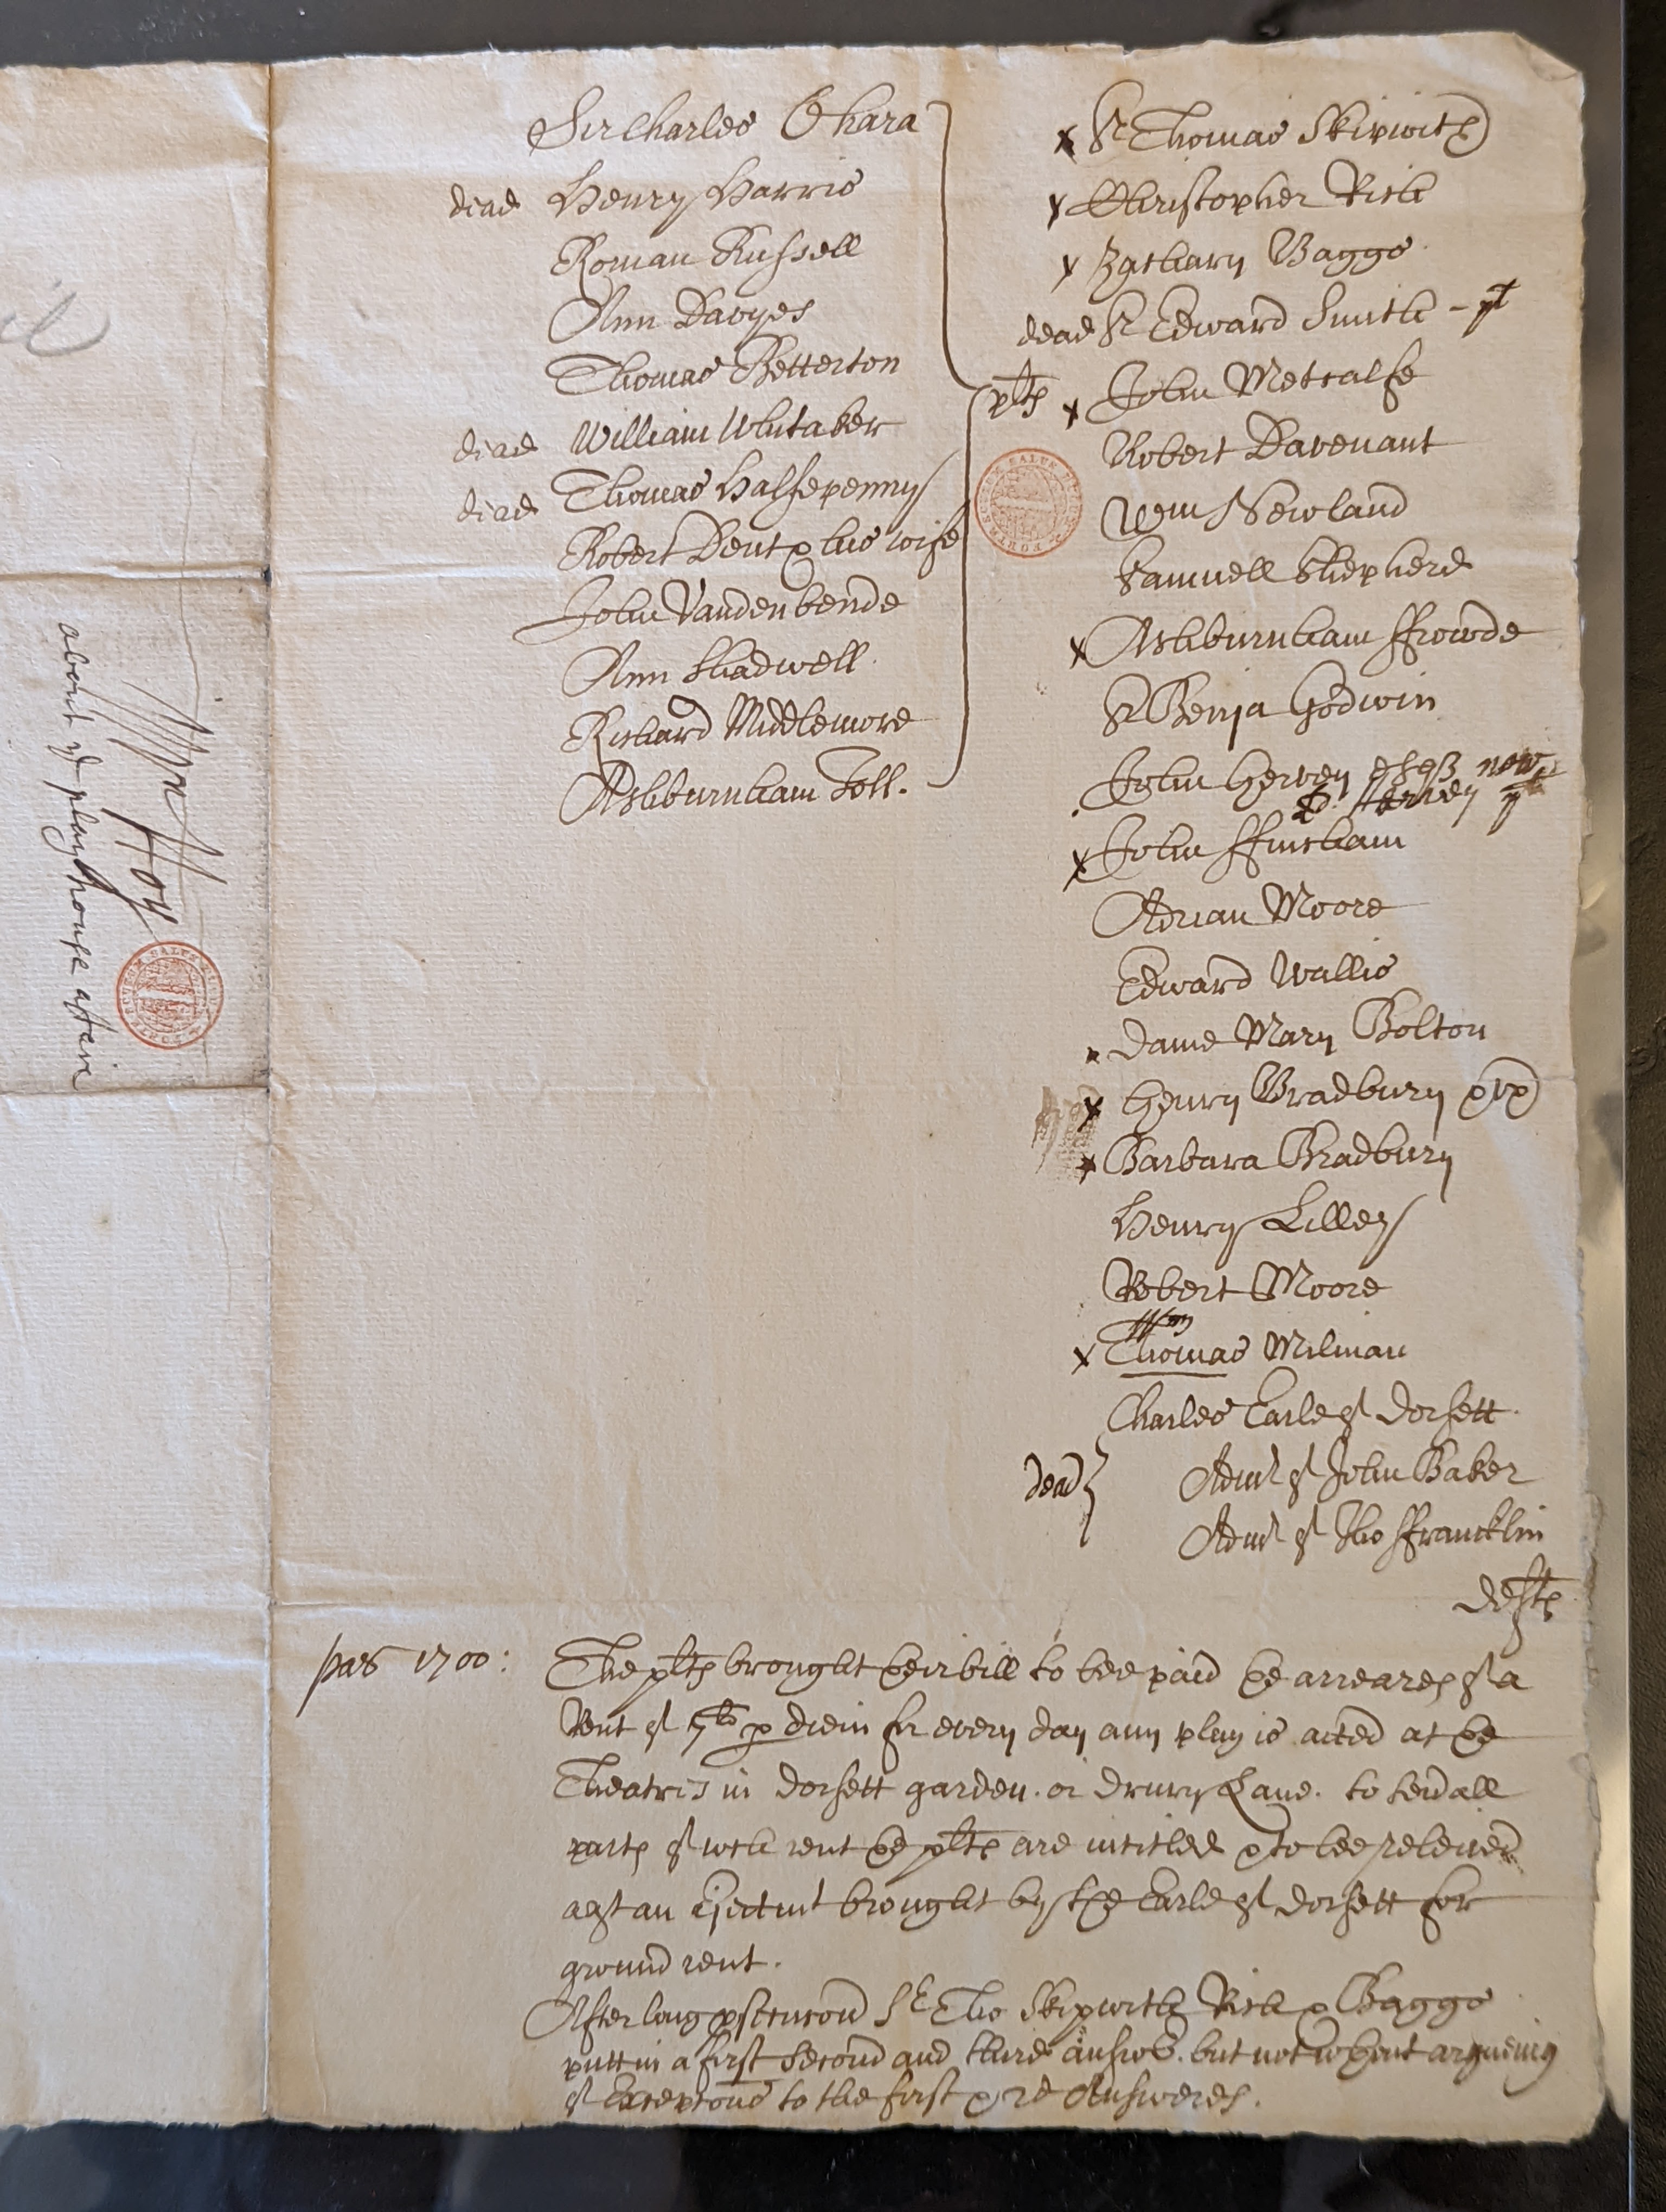 Sir Charles Ohara
dead Henry Harris
Roman Russell
Ann Davyes
Thomas Betterton
dead William Whitaker
dead Thomas Halfepenny
Robert Dent & his wife
John Vandenbende
Ann Shadwell
Richard Middlemore
Ashburnham Toll.
plts
x Sr Thomas Skipwith
x Christopher Rich
x Zachary Baggs
dead Sr Edward Smith - pt
x John Metcalfe
Robert Davenant
Wm Newland
Samuell Shepherd
x Ashburnham Frowde
Sr Benja Godwin
John Hervey now
Ld Hervey
x John ffincham
Adrian Moore
Edward Wallis
x Dame Mary Bolton
x Henry Bradbury
x Barbara Bradbury
Henry Lilley
Robert Moore
Wm
x Thomas Milman
Charles Earle of Dorsett
dead } Admr of John Baker
Admr of Tho ffrancklin
defts
pas 1700: The plts brought their bill to bee paid the arreares of a
Rent of 7ls p diem for every day any play is acted at the
Theatres in Dorsett garden or Drury Lane. to severall
parts of wch rent the plts are intitled & to bee releived
agst an Ejectmt brought by the Earle of Dorsett for
ground rent.
After long psecucon Sr Tho Skipwith Rich & Baggs
putt in a first second and third answer. but not without argueing
of Excepcons to the first & 2d Answeres.
Mr Hoy
about ye play house affair